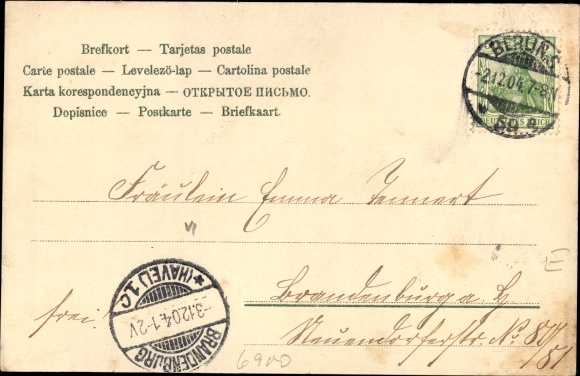 Brefkort — Tarjetas postale
Carte postale — Levelező-lap — Cartolina postale
Karta korespondencyjna — ОТКРЫТОЕ ПИСЬМО.
Dopisnice — Postkarte — Briefkaart.
BERLIN S.
-2.12.04.7-8V.
59 a
DEUTSCHES REICH
Fräulein Emma Tennert
Brandenburg a. H
Neuendorferstr. No.
/81
frei!
BRANDENBURG
-3.12.04.1-2V.
* (HAVEL) 1 C
E